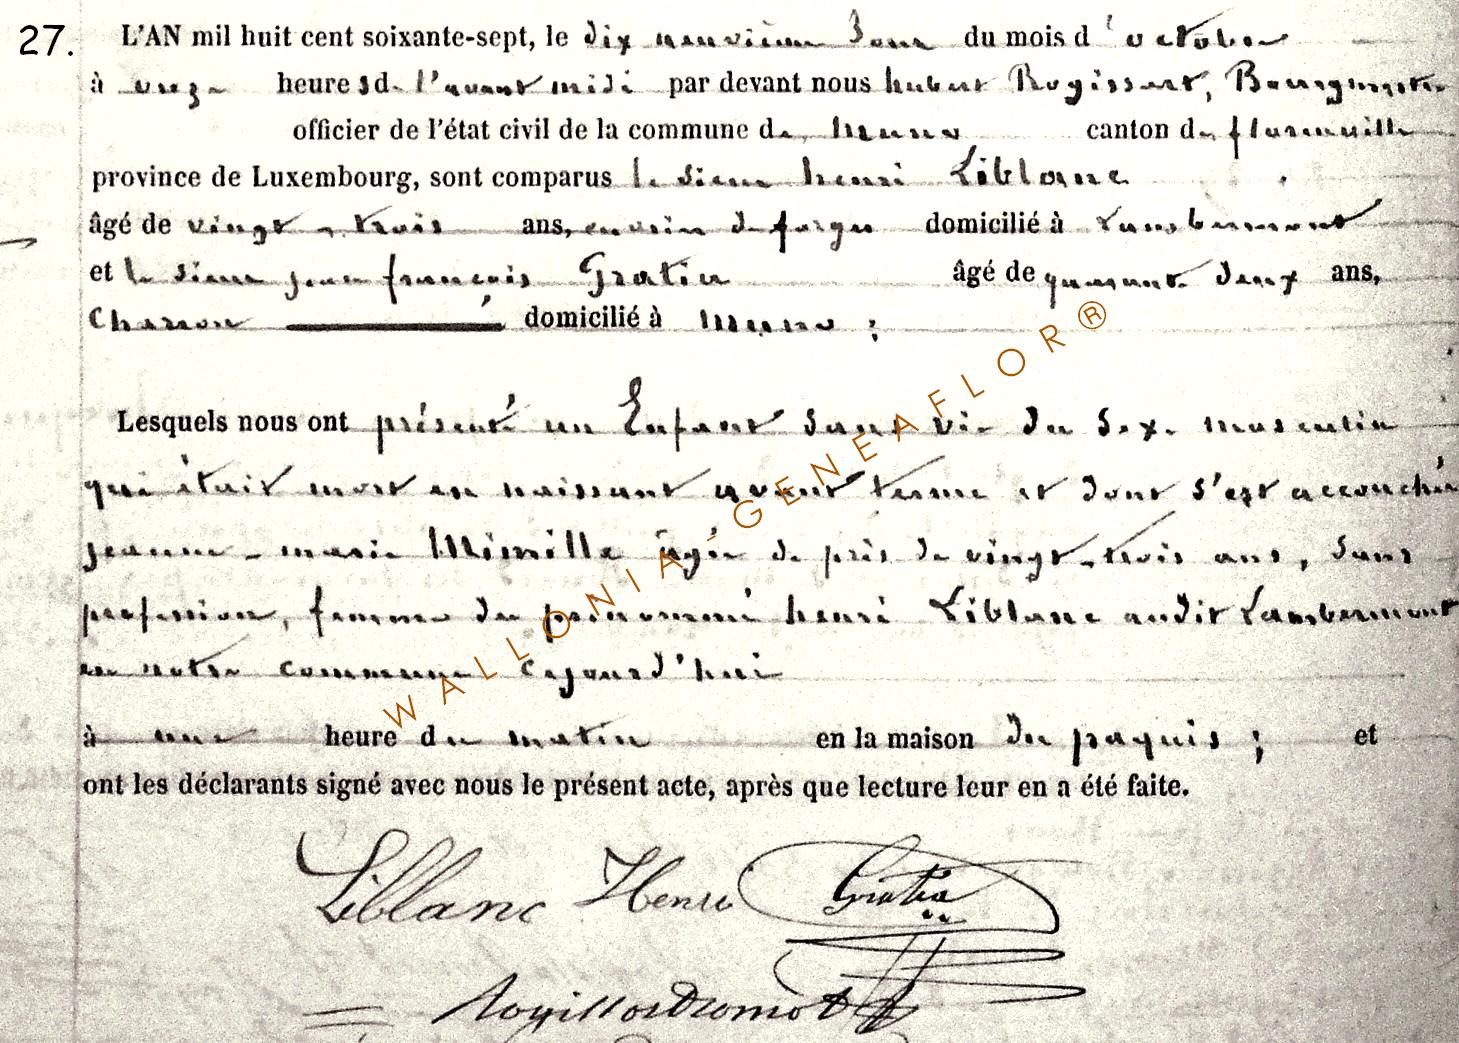 27. L'AN mil huit cent soixante-sept, le dix neuvième Jour du mois d'octobre
à onze heures de l'avant midi par devant nous hubert Rogissart, Bourgmestre
officier de l'état civil de la commune de muno canton de florenville
province de Luxembourg, sont comparus le sieur henri Liblanc
âgé de vingt-trois ans, ouvrier de forges domicilié à Lambermont
et le sieur jean françois Gratia âgé de quarante deux ans,
Charron domicilié à muno ;
Lesquels nous ont présenté un Enfant sans vie du sexe masculin
qui était mort en naissant avant terme et dont s'est accouchée
jeanne-marie Minille âgée de près de vingt-trois ans, sans
profession, femme du prénommé henri Liblanc audit Lambermont
en notre commune cejourd'hui
à une heure du matin en la maison du paquis ; et
ont les déclarants signé avec nous le présent acte, après que lecture leur en a été faite.
Liblanc Henri Gratia
WALLONIA GENEAFLOR®